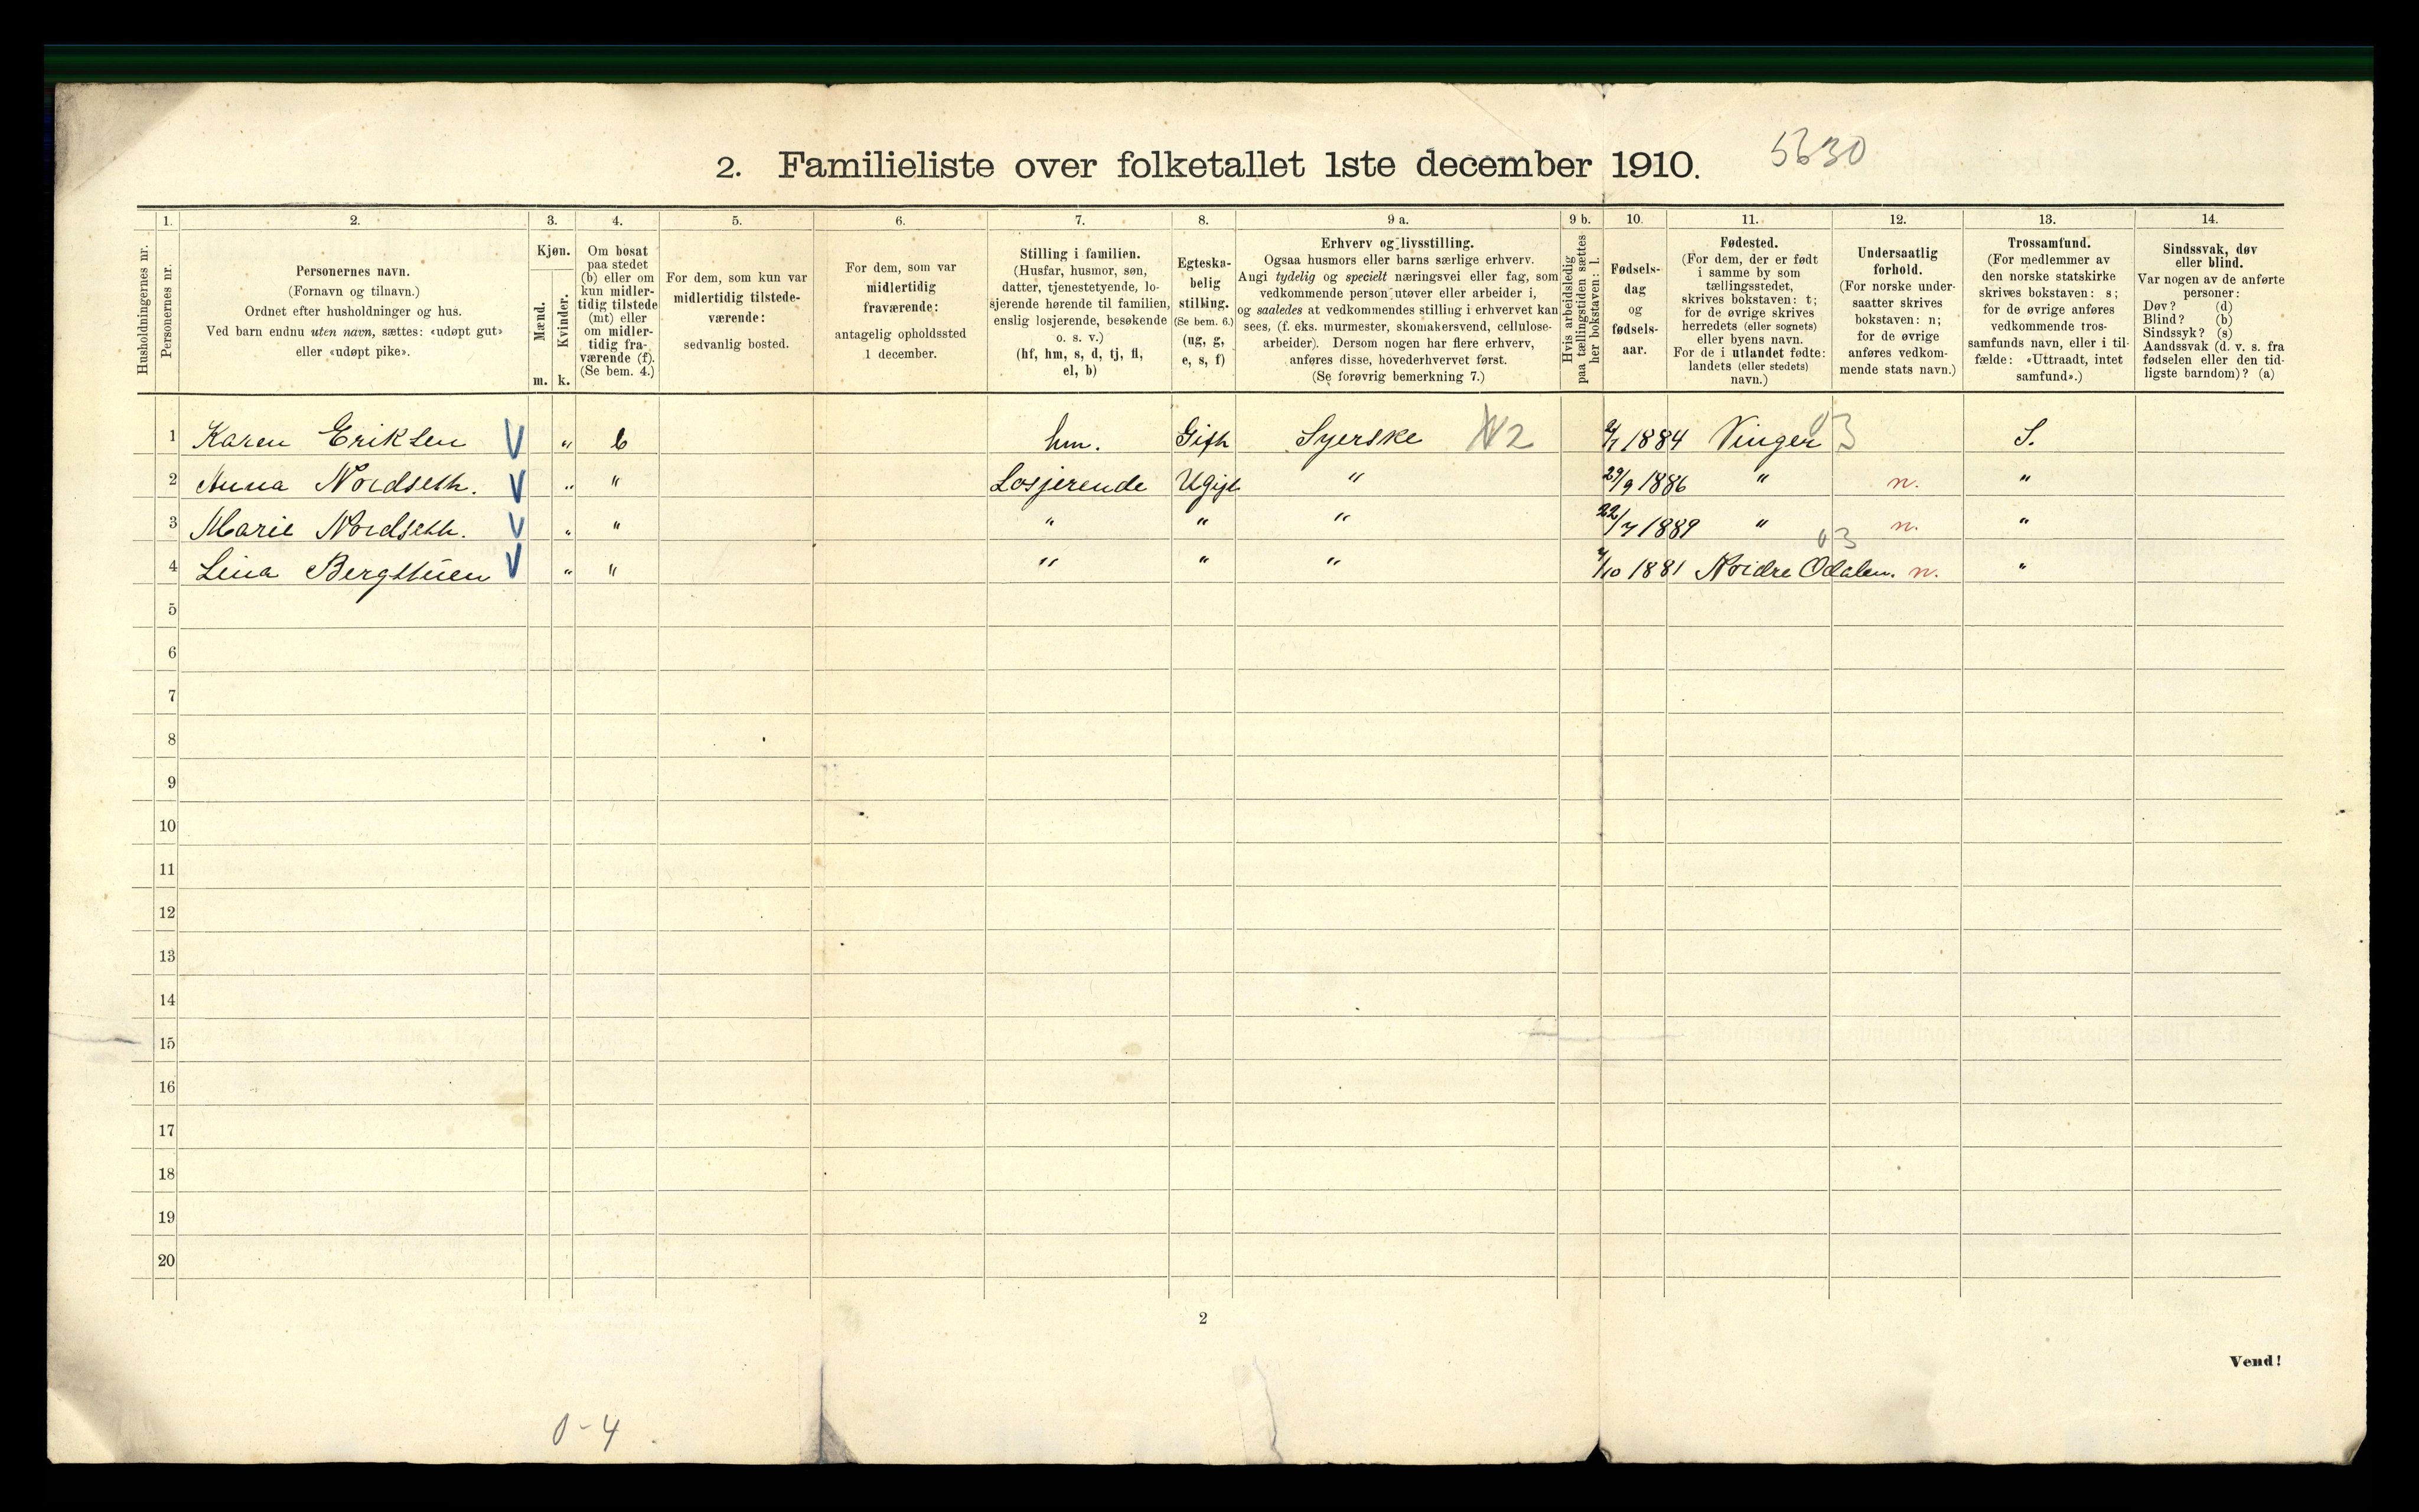 2. Familieliste over folketallet 1ste december 1910. 5630
1. 2. 3. 4. 5. 6. 7. 8. 9 a. 9 b. 10. 11. 12. 13. 14.
Husholdningernes nr.
Personernes nr.
Personernes navn.
(Fornavn og tilnavn.)
Ordnet efter husholdninger og hus.
Ved barn endnu uten navn, sættes: «udøpt gut»
eller «udøpt pike».
Kjøn.
Mænd.
Kvinder.
m. k.
Om bosat
paa stedet
(b) eller om
kun midler-
tidig tilstede
(mt) eller
om midler-
tidig fra-
værende (f).
(Se bem. 4.)
For dem, som kun var
midlertidig tilstede-
værende:
sedvanlig bosted.
For dem, som var
midlertidig
fraværende:
antagelig opholdssted
1 december.
Stilling i familien.
(Husfar, husmor, søn,
datter, tjenestetyende, lo-
sjerende hørende til familien,
enslig losjerende, besøkende
o. s. v.)
(hf, hm, s, d, tj, fl,
el, b)
Egteska-
belig
stilling.
(Se bem. 6.)
(ug, g,
e, s, f)
Erhverv og livsstilling.
Ogsaa husmors eller barns særlige erhverv.
Angi tydelig og specielt næringsvei eller fag, som
vedkommende person utøver eller arbeider i,
og saaledes at vedkommendes stilling i erhvervet kan
sees, (f. eks. murmester, skomakersvend, cellulose-
arbeider). Dersom nogen har flere erhverv,
anføres disse, hovederhvervet først.
(Se forøvrig bemerkning 7.)
Hvis arbeidsledig
paa tællingstiden sættes
her bokstaven: l.
Fødsels-
dag
og
fødsels-
aar.
Fødested.
(For dem, der er født
i samme by som
tællingsstedet,
skrives bokstaven: t;
for de øvrige skrives
herredets (eller sognets)
eller byens navn.
For de i utlandet fødte:
landets (eller stedets)
navn.)
Undersaatlig
forhold.
(For norske under-
saatter skrives
bokstaven: n;
for de øvrige
anføres vedkom-
mende stats navn.)
Trossamfund.
(For medlemmer av
den norske statskirke
skrives bokstaven: s;
for de øvrige anføres
vedkommende tros-
samfunds navn, eller i til-
fælde: «Uttraadt, intet
samfund».)
Sindssvak, døv
eller blind.
Var nogen av de anførte
personer:
Døv? (d)
Blind? (b)
Sindssyk? (s)
Aandssvak (d. v. s. fra
fødselen eller den tid-
ligste barndom)? (a)
1 Karen Eriksen V " b hm. Gift Syerske 2 1884 Vinger 03 S.
2 Anna Nordseth. V " " Losjerende Ugift " 29/9 1886 " n. "
3 Marie Nordseth. V " " " " " 22/7 1889 " n. "
4 Lina Bergstuen V " " " " " /10 1881 Nordre Odalen. 03 n. "
5
6
7
8
9
10
11
12
13
14
15
16
17
18
19
20
2
Vend!
0-4